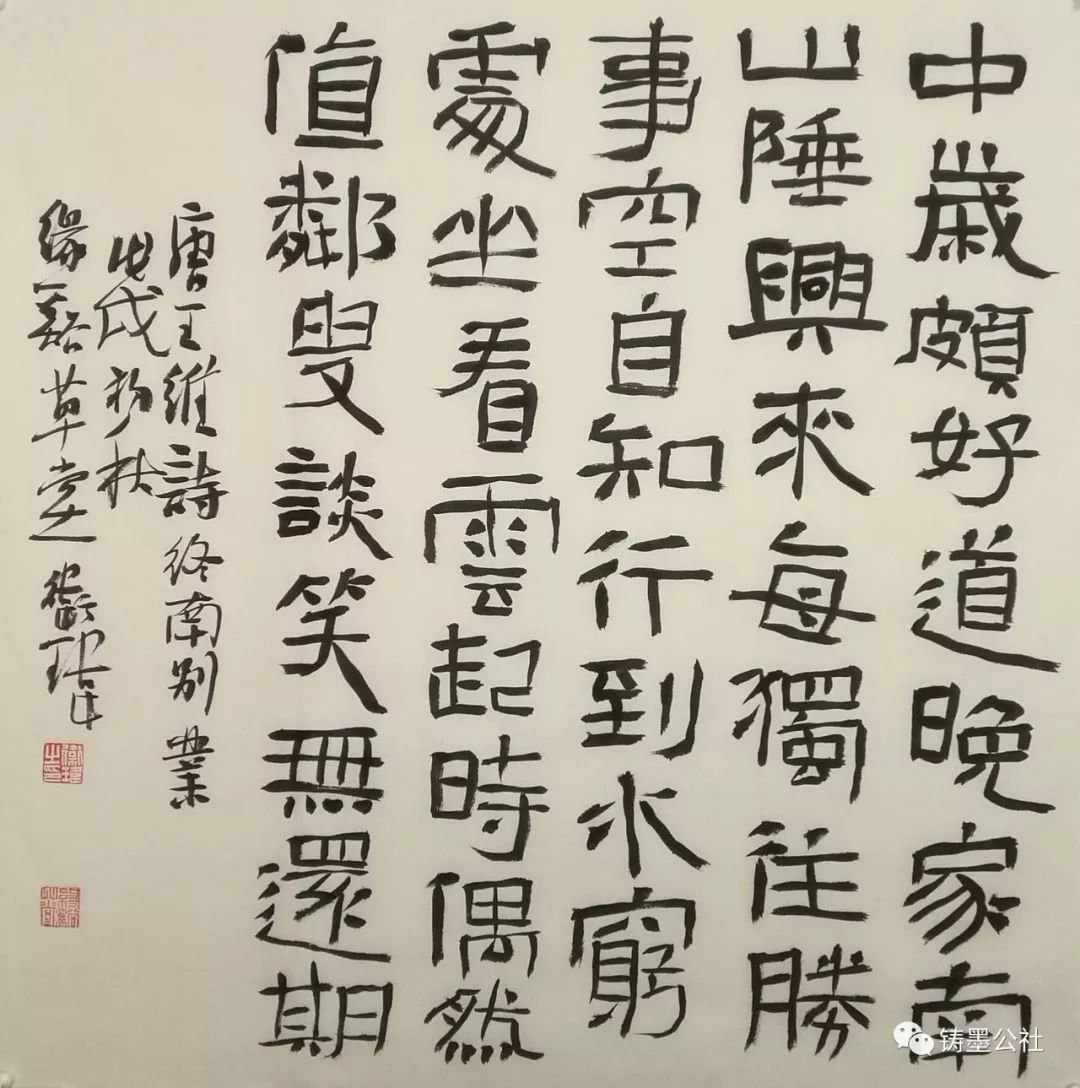 中歲頗好道晚家南
山陲興來每獨往勝
事空自知行到水窮
處坐看雲起時偶然
值鄰叟談笑無還期
唐王維詩終南別業
戊戌初秋
緣谿草堂 衛
铸墨公社